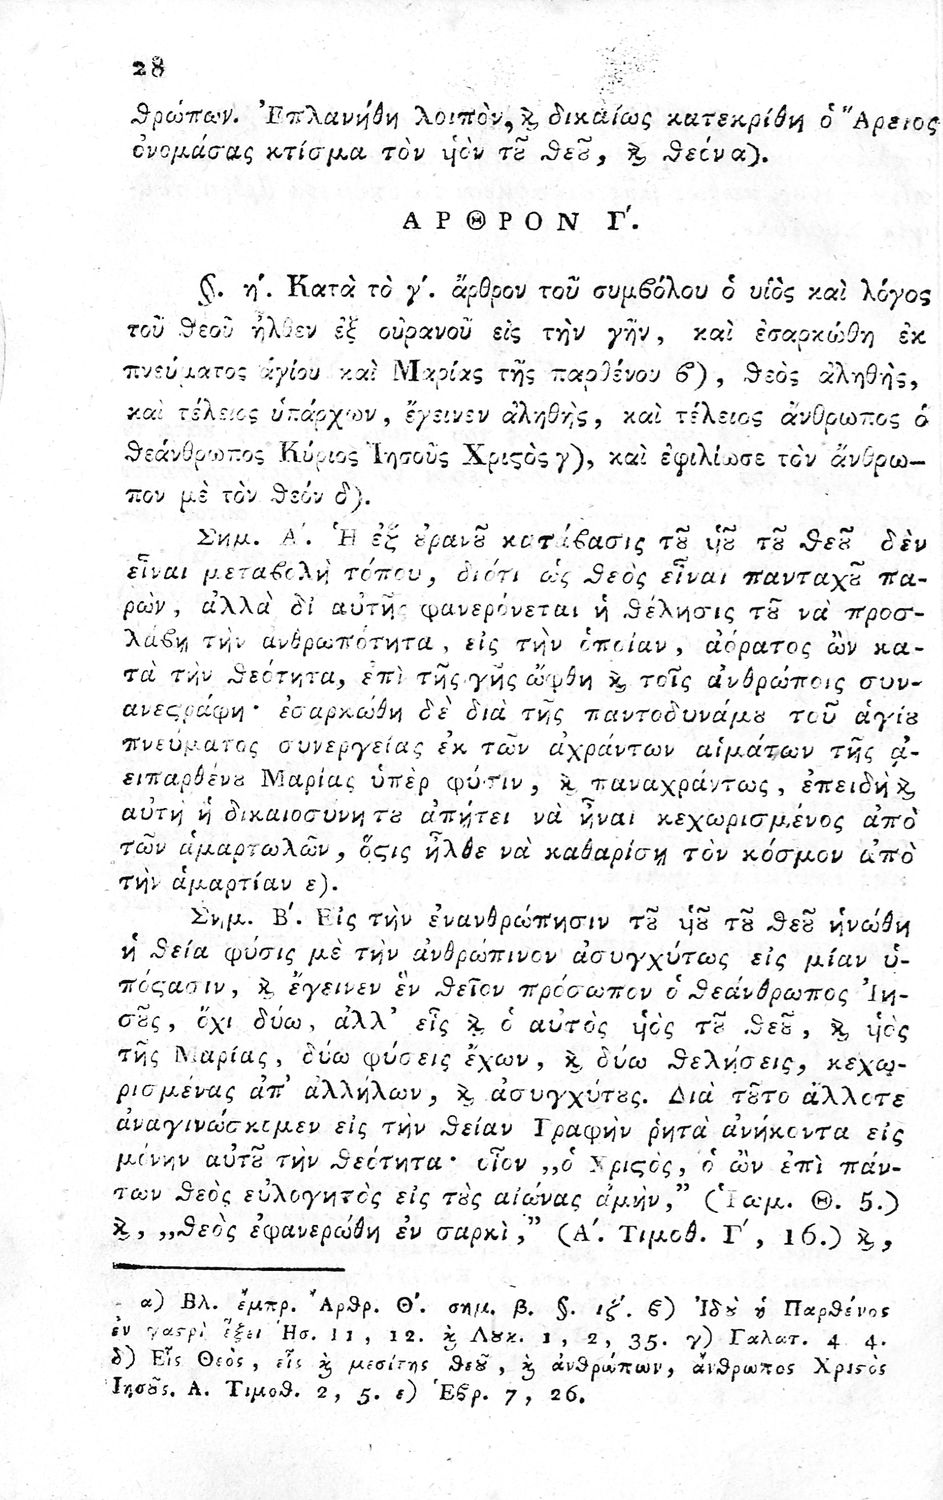 28
θρώπων. Ἐπλανήθη λοιπὸν, ϗ δικαίως κατεκρίθη ὁ Ἄρειος
ὀνομάσας κτίσμα τὸν ὑὸν τȣ͂ Θεȣ͂, ϗ Θεόν α).
ΑΡΘΡΟΝ Γ΄.
§. η΄. Κατὰ τὸ γ΄. ἄρθρον τοῦ συμβόλου ὁ υἱὸς καὶ λόγος
τοῦ Θεοῦ ἦλθεν ἐξ οὐρανοῦ εἰς τὴν γῆν, καὶ ἐσαρκώθη ἐκ
πνεύματος ἁγίου καὶ Μαρίας τῆς παρθένου β), Θεὸς ἀληθὴς,
καὶ τέλειος ὑπάρχων, ἔγεινεν ἀληθὴς, καὶ τέλειος ἄνθρωπος ὁ
Θεάνθρωπος Κύριος Ἰησοῦς Χριϛὸς γ), καὶ ἐφιλίωσε τὸν ἄνθρω–
πον μὲ τὸν Θεόν δ).
Σημ. Α΄. Ἡ ἐξ ȣ̓ρανȣ͂ κατάβασις τȣ͂ ὑȣ͂ τȣ͂ Θεȣ͂ δὲν
εἶναι μεταβολὴ τόπου, διότι ὡς Θεὸς εἶναι πανταχȣ͂ πα-
ρὼν, ἀλλὰ δι αὐτῆς φανερόνεται ἡ θέλησις τȣ͂ νὰ προσ-
λάβῃ τὴν ἀνθρωπότητα, εἰς τὴν ὁποίαν, ἀόρατος ὢν κα-
τὰ τὴν Θεότητα, ἐπὶ τῆς γῆς ὤφθη ϗ τοῖς ἀνθρώποις συν-
ανεϛράφη· ἐσαρκώθη δὲ διὰ τῆς παντοδυνάμȣ τοῦ ἁγίȣ
πνεύματος συνεργείας ἐκ τῶν ἀχράντων αἱμάτων τῆς ἀ-
ειπαρθένȣ Μαρίας ὑπὲρ φύσιν, ϗ παναχράντως, ἐπειδὴ ϗ
αὐτὴ ἡ δικαιοσυνη τȣ ἀπῄτει νὰ ἦναι κεχωρισμένος ἀπὸ
τῶν ἁμαρτωλῶν, ὅϛις ἦλθε νὰ καθαρίσῃ τὸν κόσμον ἀπὸ
τὴν ἁμαρτίαν ε).
Σημ. Β΄. Εἰς τὴν ἐνανθρώπησιν τȣ͂ ὑȣ͂ τȣ͂ Θεȣ͂ ἡνώθη
ἡ θεία φύσις μὲ τὴν ἀνθρώπινον ἀσυγχύτως εἰς μίαν ὑ-
πόϛασιν, ϗ ἔγεινεν ἓν θεῖον πρόσωπον ὁ Θεάνθρωπος Ἰη-
σȣ͂ς, ὄχι δύω, ἀλλ' εἷς ϗ ὁ αὐτὸς ὑὸς τȣ͂ Θεȣ͂, ϗ ὑὸς
τῆς Μαρίας, δύω φύσεις ἔχων, ϗ δύω θελήσεις, κεχω-
ρισμένας ἀπ' ἀλλήλων, ϗ ἀσυγχύτȣς. Διὰ τȣ͂το ἄλλοτε
ἀναγινώσκομεν εἰς τὴν θείαν Γραφὴν ῥητὰ ἀνήκοντα εἰς
μόνην αὐτȣ͂ τὴν Θεότητα· οἷον ,,ὁ Χριϛὸς, ὁ ὢν ἐπὶ πάν-
των Θεὸς εὐλογητὸς εἰς τȣ̀ς αἰώνας ἀμὴν,” (Ῥωμ. Θ. 5.)
ϗ, ,,Θεὸς ἐφανερώθη ἐν σαρκὶ,” (Α΄. Τιμοθ. Γ΄, 16.) ϗ,
α) Βλ. ἔμπρ. Ἄρθρ. Θ΄. σημ. β. §. ιζ΄. β) Ἰδȣ̀ ἡ Παρθένος
ἐν γαστρὶ ἕξει Ἡσ. 11, 12. ϗ Λȣκ. 1, 2, 35. γ) Γαλατ. 4 4.
δ) Εἷς Θεὸς, εἷς ϗ μεσίτης Θεȣ͂, ϗ ἀνθρώπων, ἄνθρωπος Χριϛὸς
Ἰησȣ͂ς. Α. Τιμοθ. 2, 5. ε) Ἑβρ. 7, 26.